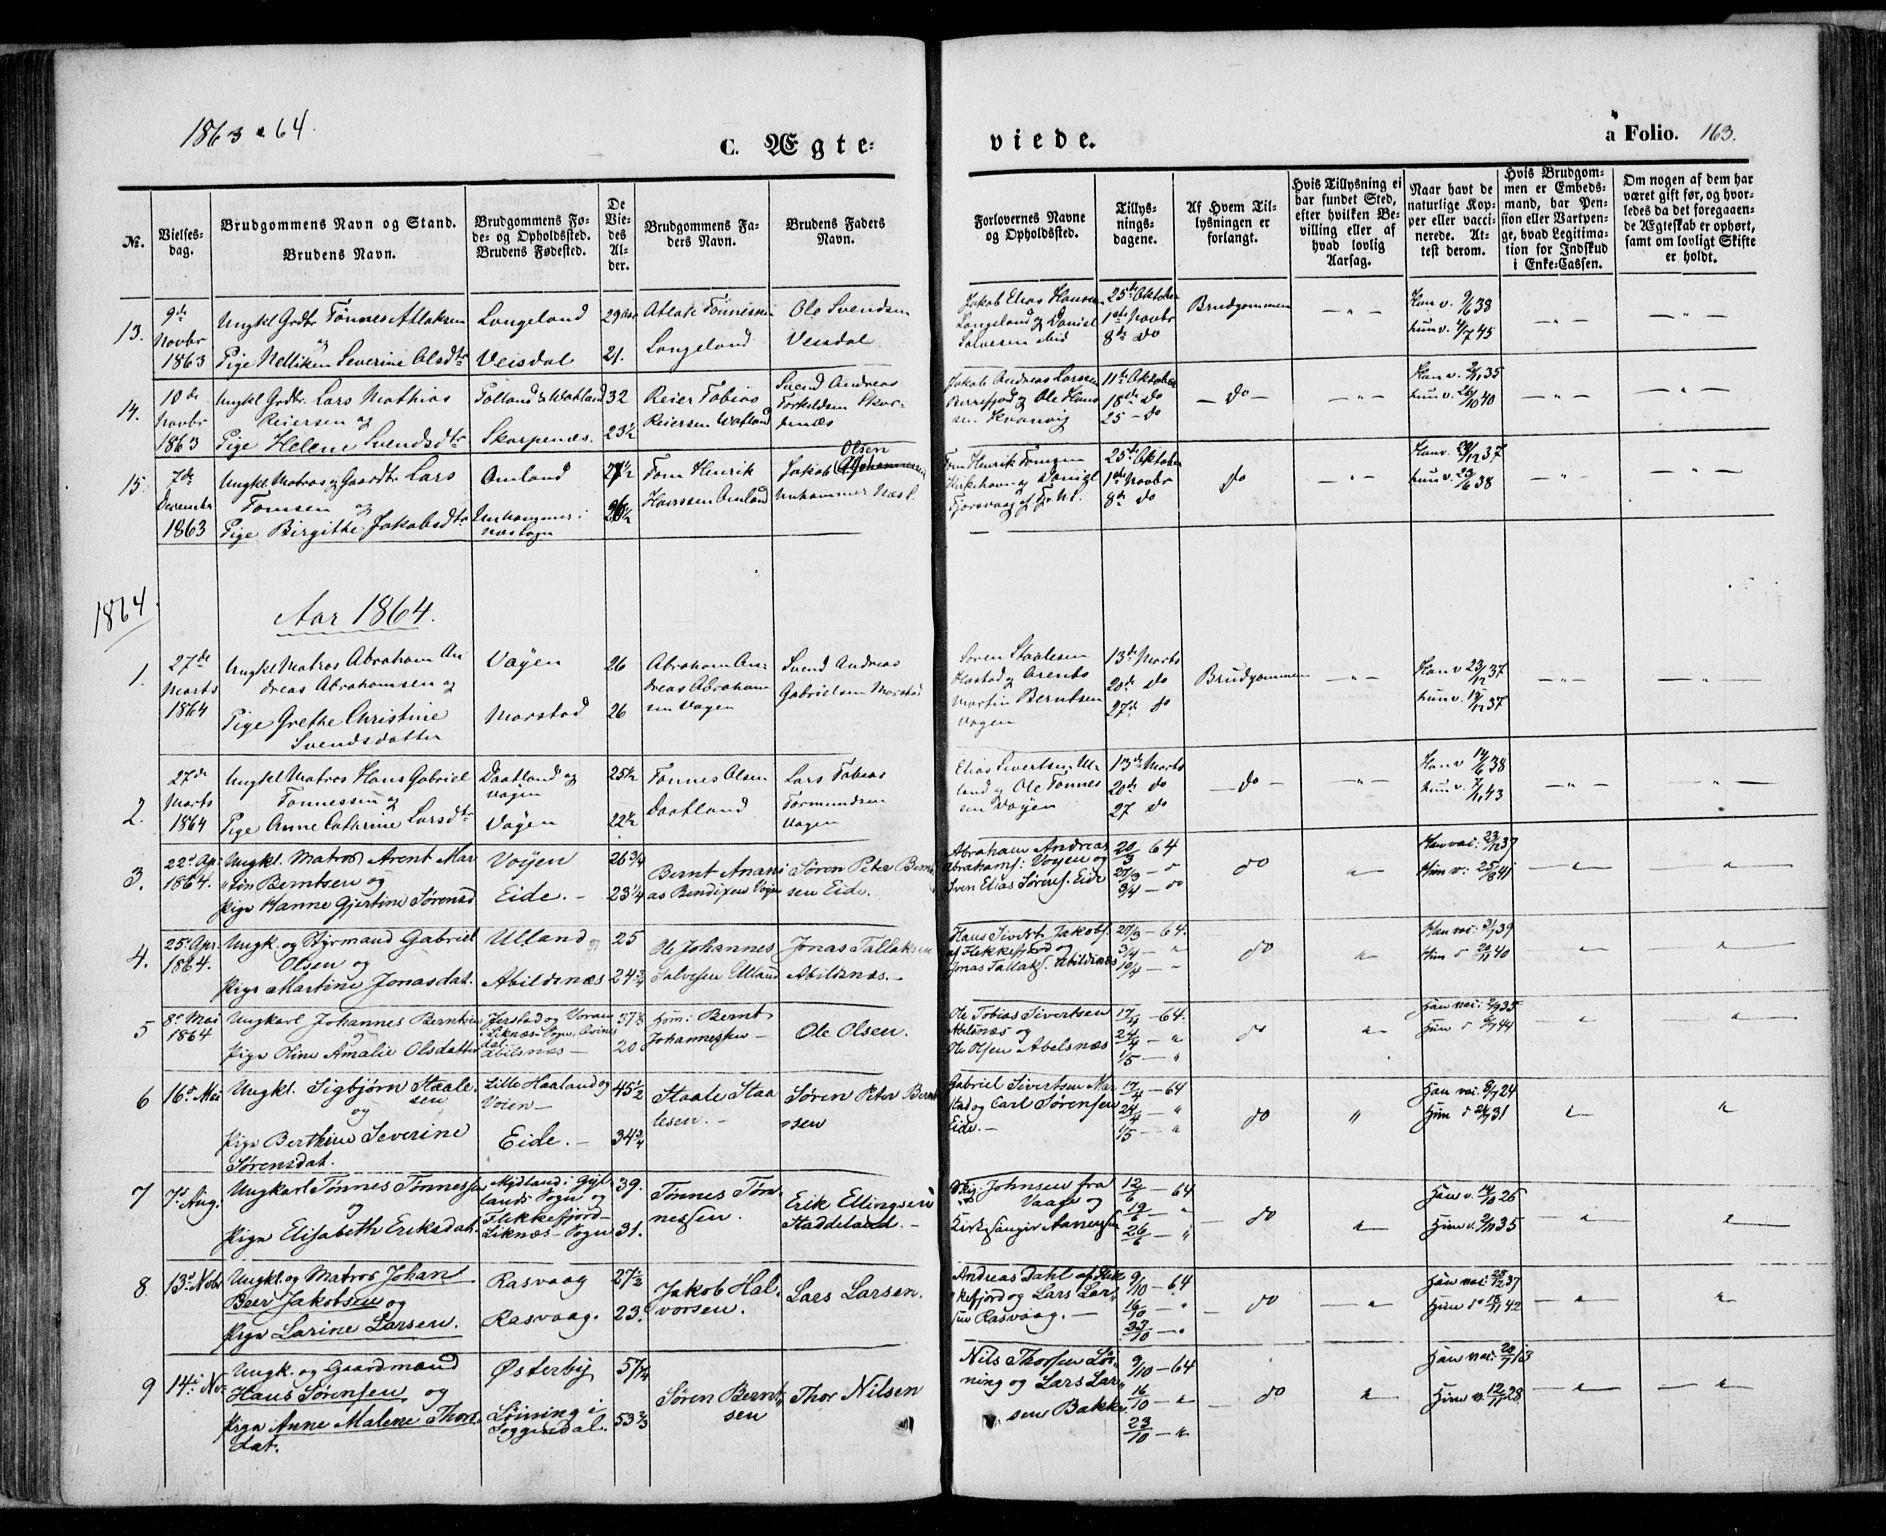 1863 & 64.
C. Ægte=
viede.
a Folio. 163.
No.
Vielses-
dag.
Brudgommens Navn og Stand.
Brudens Navn.
Brudgommens Fø-
de- og Opholdssted.
Brudens Fødested.
De
Vie-
des
Al-
der.
Brudgommens Fa-
ders Navn.
Brudens Faders
Navn.
Forlovernes Navne
og Opholdssted.
Tillys-
nings-
dagene.
Af Hvem Til-
lysningen er
forlangt.
Hvis Tillysning ei
har fundet Sted,
efter hvilken Be-
villing eller af
hvad lovlig
Aarsag.
Naar havt de
naturlige Kop-
per eller vacci-
nerede. At-
test derom.
Hvis Brudgom-
men er Embeds-
mand, har Pen-
sion eller Vartpen-
ge, hvad Legitima-
tion for Indskud
i Enke-Cassen.
Om nogen af dem har
været gift før, og hvor-
ledes da det foregaaen-
de Ægteskab er ophørt,
samt om lovligt Skifte
er holdt.
13.
9de
Novbr
1863
Ungkl Grdbr Tønnes Atlaksen
og
Pige Nelliken Severine Olsdtr
Longeland
Veisdal
29 Aar
21.
Atlak Tønnessen
Longeland
Ole Svendsen
Veisdal
Jakob Elias Hansen
Longeland og Daniel
Salvesen ibid
25de Oktober
1ste Novbr
8de do
Brudgommen
Han v. 9/6 38
hun v. 4/7 45
14.
10de
Novbr
1863
Ungkl Grdbr. Lars Mathias
Reiersen og
Pige Helene Svendsdtr
Tolland & Watland
Skarpenæs.
32
23½
Reier Tobias
Reiersen Watland
Svend Andreas
Torkildsen Skar-
penæs
Jakob Andreas Larssen
og Ole Hans
sen Kvanvig
11te Oktober
18de do
25 - do
- do -
Han v. 35
hun v. 26/10 40
15.
7de
December
1863
Ungkl Matros og Gaardbr Lars
Tomsen og
Pige Birgithe Jakobsdtr
Omland
Urhammer i
Næs Sogn
27½
26½
Tom Henrik
Omland
Jakob Olsen
Urhammer Næs S.
Tom Henrik Tomsen
Kirkehavn og Daniel
25de Oktober
1ste Novbr
8de do
do
Han v. 29/12 37
hun v. 23/6 38
1864.
Aar 1864.
1.
27de
Marts
1864
Ungkl Matros Abraham An-
dreas Abrahamsen og
Pige Grethe Christine
Svendsdatter
Vøyen
Marstad
26
26
Abraham An-
dreas Abraham
sen Vøyen
Svend Andreas
Gabrielsen Marstad
Søren Staalesen
og Arents
Martin Berntsen
Vøyen
13de Marts
20de do
27de do
Brudgommen
Han v 23/12 37
hun v. 19/12 37
2.
27de
Marts
1864
Ungkl Matros Hans Gabriel
Tønnessen og
Pige Anne Cathrine Larsdtr
Daatland og
Vøyen
Vøyen
25½
22½
Tønnes Olsen
Daatland
Lars Tobias
Tormundsen
Vøyen
Elias Sivertsen Ul-
land og Ole Tønnes
sen Vøyen
13de Marts
20de do
27 do
- do -
Han v 14/6 38
hun v. 7/11 43
3.
22d Apr
1864.
Ungkl. Matros Arent Mar-
tin Berntsen og
Pige Hanne Gjertine Sørensd
Vøyen
Eide. -
26 ¾
23 ¼
Bernt Anani-
as Bendixen Vøyen
Søren Peter Bernt-
sen Eide.
Abraham Andreas
Abrahams: Vøyen og
Sven Elias Sørens. Eide
20/3 - 64
27/3 - do
3/4 - do
do
Han vac: 23/12 37
Hun v: 25/8 41
4.
25d Apr.
1864.
Ungk. og Styrmand Gabriel
Olsen og
Pige Martine Jonasdat.
Ulland
Abildsnæs
25
24¾
Ole Johannes
Salvesen Ulland
Jonas Tallaksen
Abildsnæs. -
Hans Sivert Jakobs.
af Flekkefjord og
Jonas Tallaks. Abildsnæs
27/3 - 64.
3/4 - "
10/4 - "
do
Han v: 3/1 39
Hun d 20/11 40
5
8d Mai
1864
Ungkarl Johannes Berntsen
og
Pige Oline Amalie Olsdatter
Jerstad og Voran
i Liknæs-Sogn, Qvines
dal.
Abelsnæs -
37½
20
Hm: Bernt
Johannessen -
Ole Olsen.
Ole Tobias Sivertsen
Abelsnæs og
Ole Olsen Abelsnæs
17/4 - 64.
24/4 - "
1/5 - "
do
Han vac: 35
Hun d 44
6
16d Mai
Ungkl. Sigbjørn Staale-
sen
og
Pige Berthine Severine
Sørensdat.
Lille Haaland og
Vøien -
Eide. -
45½
34¾
Staale Staa
lesen. -
Søren Peter Bernt
sen
Gabriel Sivertsen Mar
stad og Carl Sørensen
Eide. -
17/4 - 64
24/4 - "
1/5 - "
do
"
Han vac: 24
Hun d 31
7
7d Aug.
Ungkarl Tønnes Tønnessen
og
Pige Elisabeth Eriksdat.
Mydland i Gyl-
lands Sogn og
Flekkefjord -
Liknæs-Sogn
39.
31.
Tønnes Tøn
nessen.
Erik Ellingsen
Staddeland. -
Johnsen fra
Vaage og
Kirkesanger Aanensen
12/6 - 64
19/6 - "
26/6 - "
- do
Han v. 14/10 25
Hun v. 35
8
13d Nobr
Ungkl. og Matros Johan
Beer Jakobsen og
Pige Larine Larsen.
Rasvaag
Rasvaag.
27½
23.
Jakob Hal-
vorsen.
Lars Larsen.
Andreas Dahl af Flek
kefjord og Lars Lar-
sen Rasvaag. -
9/10 - 64
16/10 - "
23/10 - "
- do
Han vac: 28/12 37
Hun do 18/11 42
9
14d No-
Ungk. og Gaardmand
Hans Sørensen og
Pige Anne Malene Thors
dat.
Østerby
Løining i
Soggendal.
51¼
53⅔
Søren Bernt-
sen
Thor Nilsen
Nils Thorsen Løi-
ning og Lars Lar-
sen Bakke
9/10 - 64
16/10 - "
23/10 - "
- do
Han vac: 20/7 13
Hun v. 12/11 28